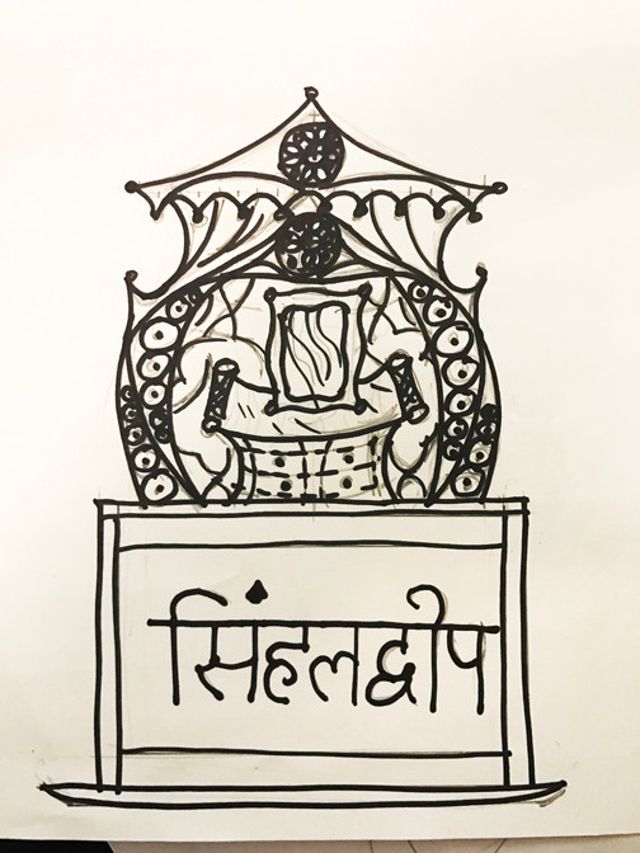 सिंहलद्वीप